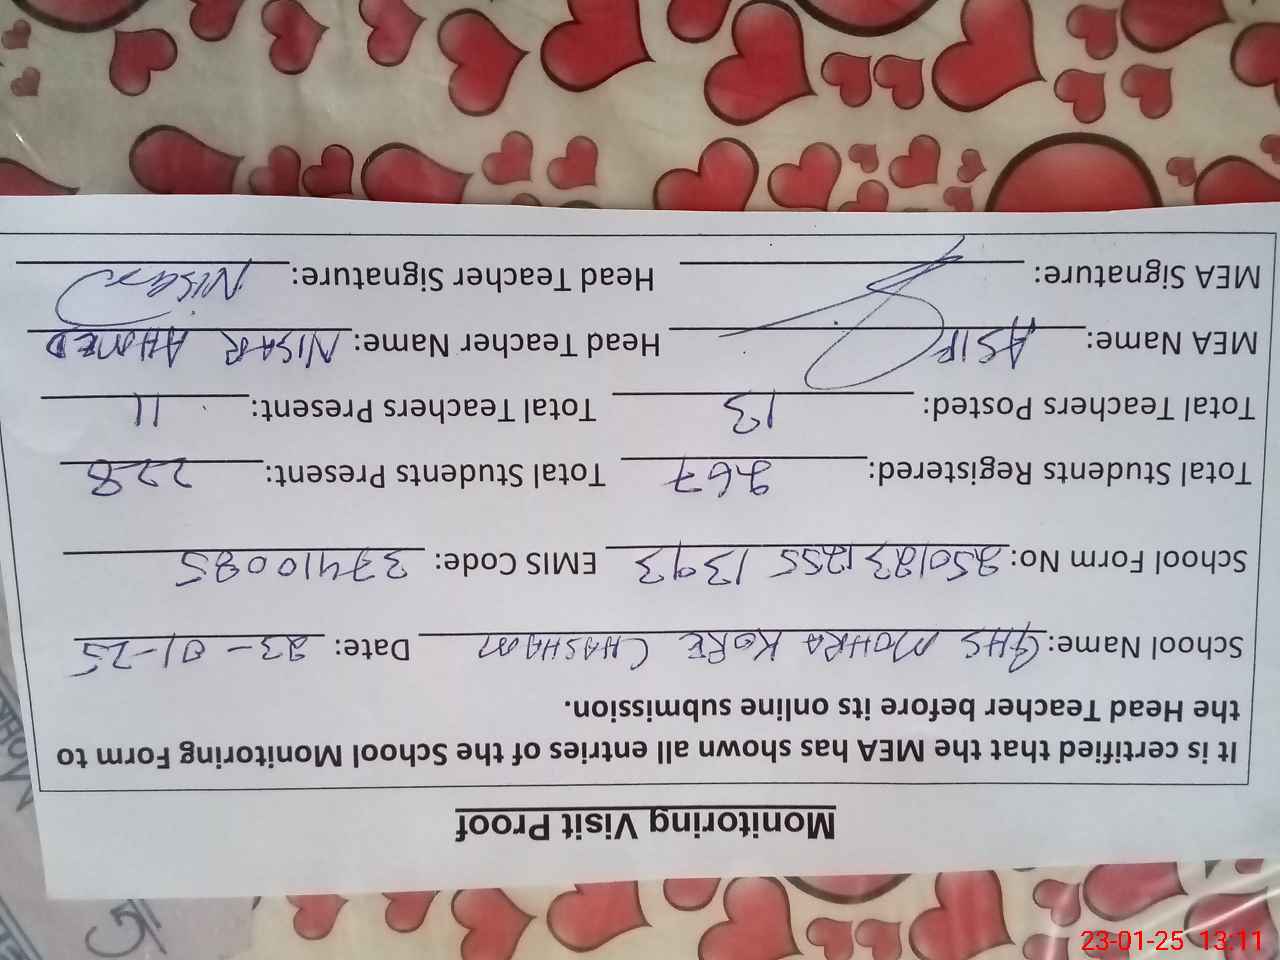 Monitoring Visit Proof
It is certified that the MEA has shown all entries of the School Monitoring Form to
the Head Teacher before its online submission.
School Name: GHS MOHRA KORE CHASHAM Date: 23-01-25
School Form No: 250123125S 1393 EMIS Code: 37410085
Total Students Registered: 267 Total Students Present: 228
Total Teachers Posted: 13 Total Teachers Present: 11
MEA Name: ASIF Head Teacher Name: NISAR AHMED
MEA Signature: Head Teacher Signature: Nisar
23-01-25 13:11